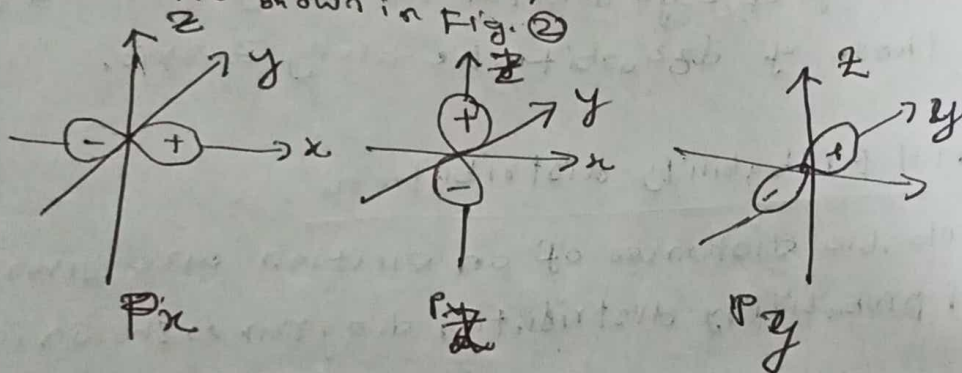 shown in Fig. ②
z y x - +
z y x + -
z y + -
Px
Pz
Py